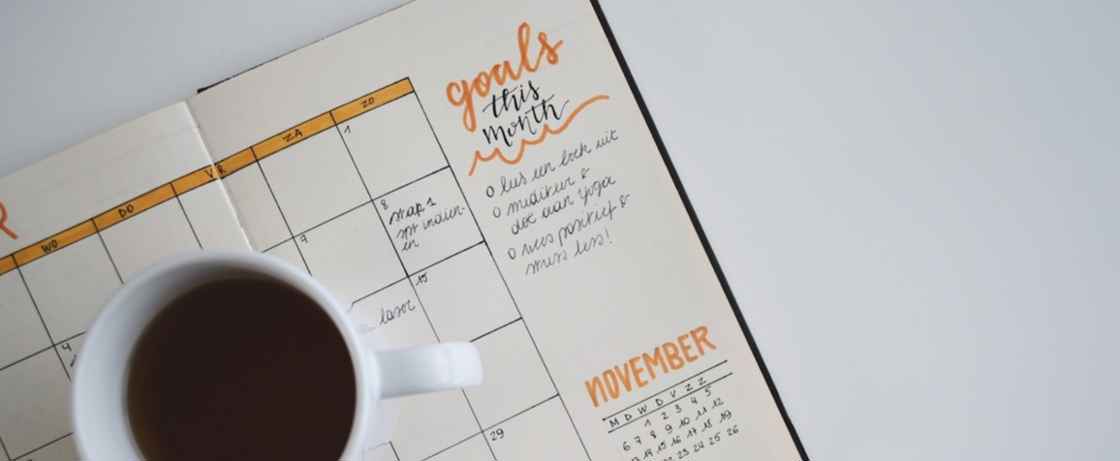 R
WO DO VR ZA ZO
1
4
7
8
stap 1
indien-
en
15
laser
29
goals
this
month
o lees een boek uit
o mediteer &
doe aan yoga
o wees positief &
stress less!
NOVEMBER
M D W D V Z Z
1 2 3 4 5
6 7 8 9 10 11 12
13 14 15 16 17 18 19
23 24 25 26